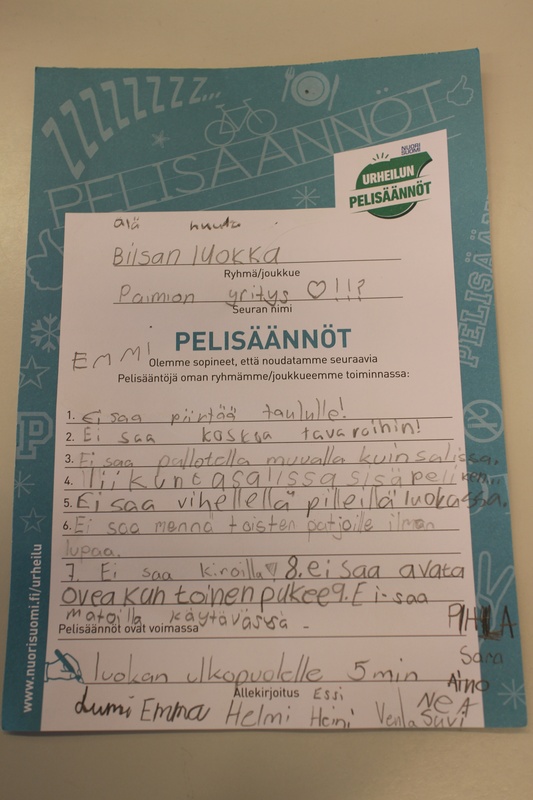 ZZZZZZZZ...
PELISÄÄNNÖT
NUORI
SUOMI
URHEILUN
PELISÄÄNNÖT
älä huuda
Biisan luokka
Ryhmä/joukkue
Paimion yritys ♡!!?
Seuran nimi
PELISÄÄNNÖT
EMMI
Olemme sopineet, että noudatamme seuraavia
Pelisääntöjä oman ryhmämme/joukkueemme toiminnassa:
1. Ei saa piirtää taululle!
2. Ei saa koskea tavaroihin!
3. Ei saa pallotella muualla kuin salissa.
4. liikuntasalissa sisäpeli
5. Ei saa vihellellä pilleillä luokassa.
6. Ei saa mennä toisten patjoille ilman
lupaa.
7. Ei saa kiroilla♡ 8. ei saa avata
ovea kun toinen pukee 9. Ei-saa
matoilla käytävässä
Pelisäännöt ovat voimassa
luokan ulkopuolelle 5 min
Allekirjoitus Essi
PIHLA
Sara
Aino
NEA
Lumi Emma Helmi Heini Venla Suvi
www.nuorisuomi.fi/urheilu